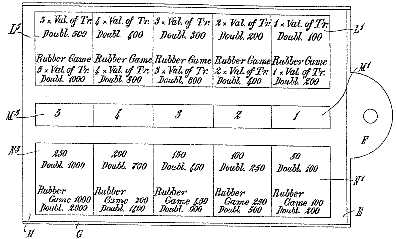 5 × Val. of Tr. 4 × Val. of Tr. 3 × Val. of Tr. 2 × Val. of Tr. 1 × Val. of Tr.
Doubl. 500 Doubl. 400 Doubl. 300 Doubl. 200 Doubl. 100
Rubber Game Rubber Game Rubber Game Rubber Game Rubber Game
5 × Val. of Tr. 4 × Val. of Tr. 3 × Val. of Tr. 2 × Val. of Tr. 1 × Val. of Tr.
Doubl. 1000 Doubl. 800 Doubl. 600 Doubl. 400 Doubl. 200
L⁵ L¹
M⁵ 5 4 3 2 1 M¹
F
N⁵ 250 200 150 100 50
Doubl. 1000 Doubl. 700 Doubl. 450 Doubl. 250 Doubl. 100
Rubber Rubber Rubber Rubber Rubber
Game 1000 Game 700 Game 400 Game 250 Game 100 N¹
Doubl. 2000 Doubl. 1400 Doubl. 900 Doubl. 500 Doubl. 200
H G E